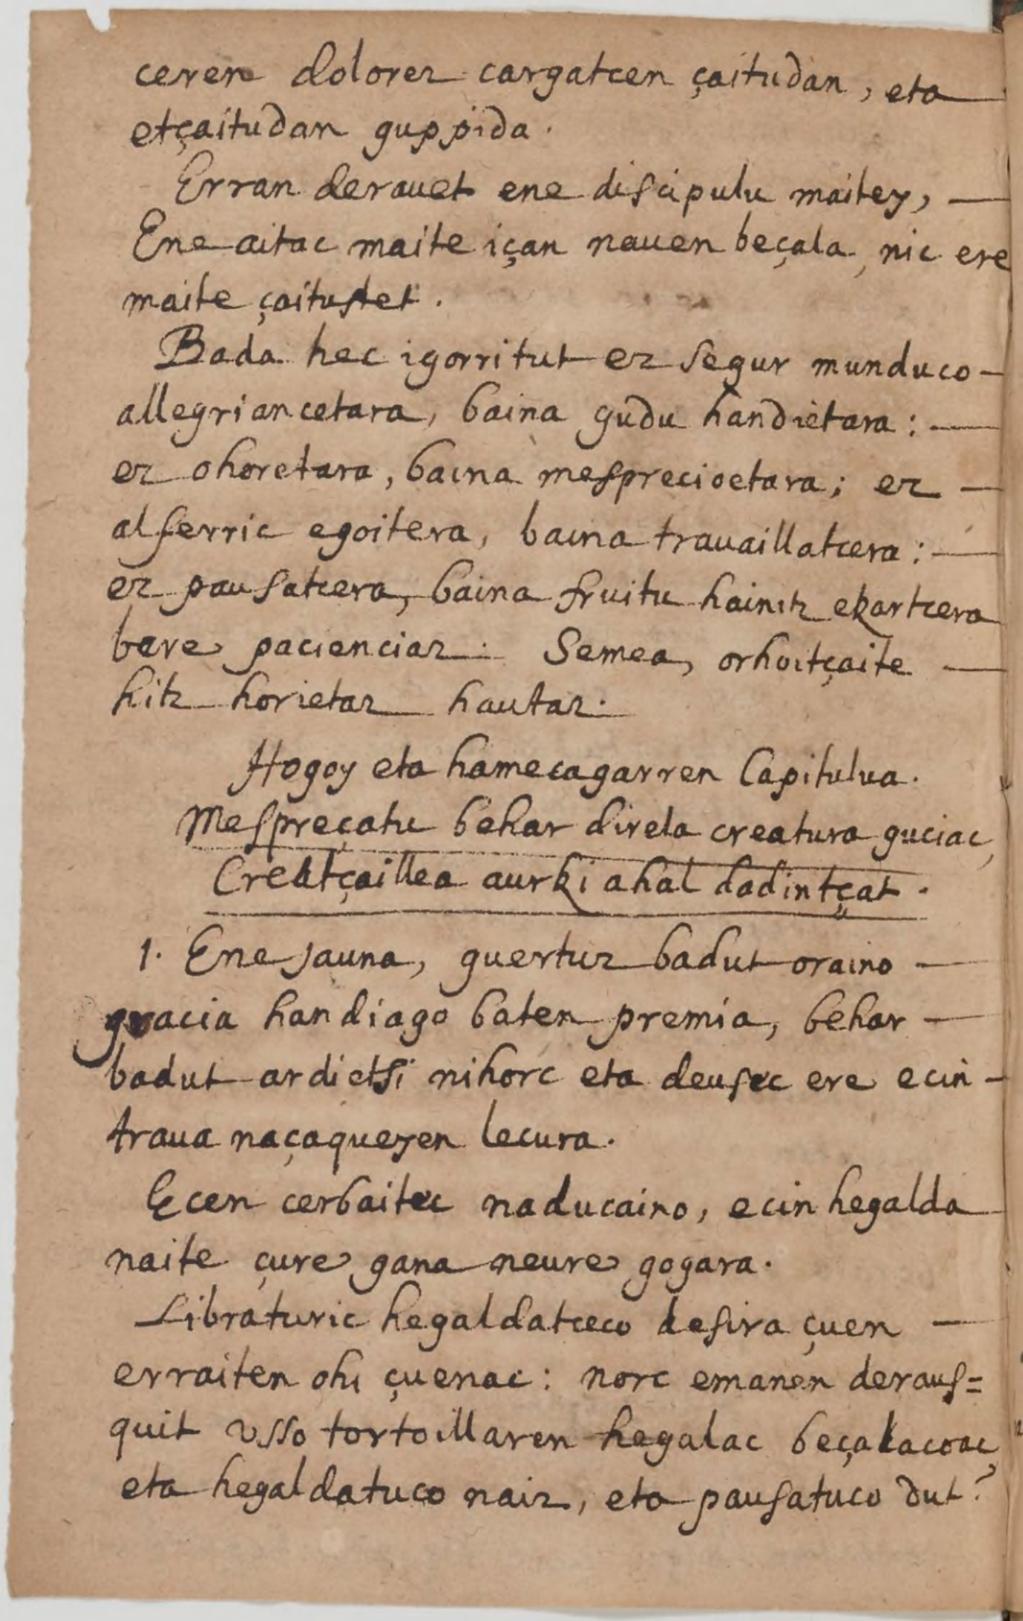 ceren dolorez cargatcen çaitudan, eta
etçaitudan guppida.
Erran derauet ene discipulu maitey,
Ene aitac maite içan nauen beçala, nic ere
maite çaituztet.
Bada hec igorri tut ez segur munduco
allegriancetara, baina gudu handietara:
ez ohoretara, baina mesprecioetara; ez
alferric egoitera, baina trauaillatcera:
ez pausatcera, baina fruitu hainitz ekartcera
bere pacienciaz. Semea, orhoitçaite
hitz horietaz hautaz.
Hogoy eta hamecagarren Capitulua.
Mespreçatu behar direla creatura guciac,
Creatçaillea aurki ahal dadintçat.
1. Ene Jauna, guertuz badut oraino
gracia handiago baten premia, behar
badut ardietsi nihorc eta deusec ere ecin
traua naçaqueyen lecura.
Ecen cerbaitec naducaino, ecin hegalda
naite çure gana neure gogara.
Libraturic hegaldatceco desira çuen
erraiten ohi çuenac: norc emanen deraus=
quit vsso tortoillaren hegalac beçalacoac,
eta hegaldatuco naiz, eta pausatuco dut?